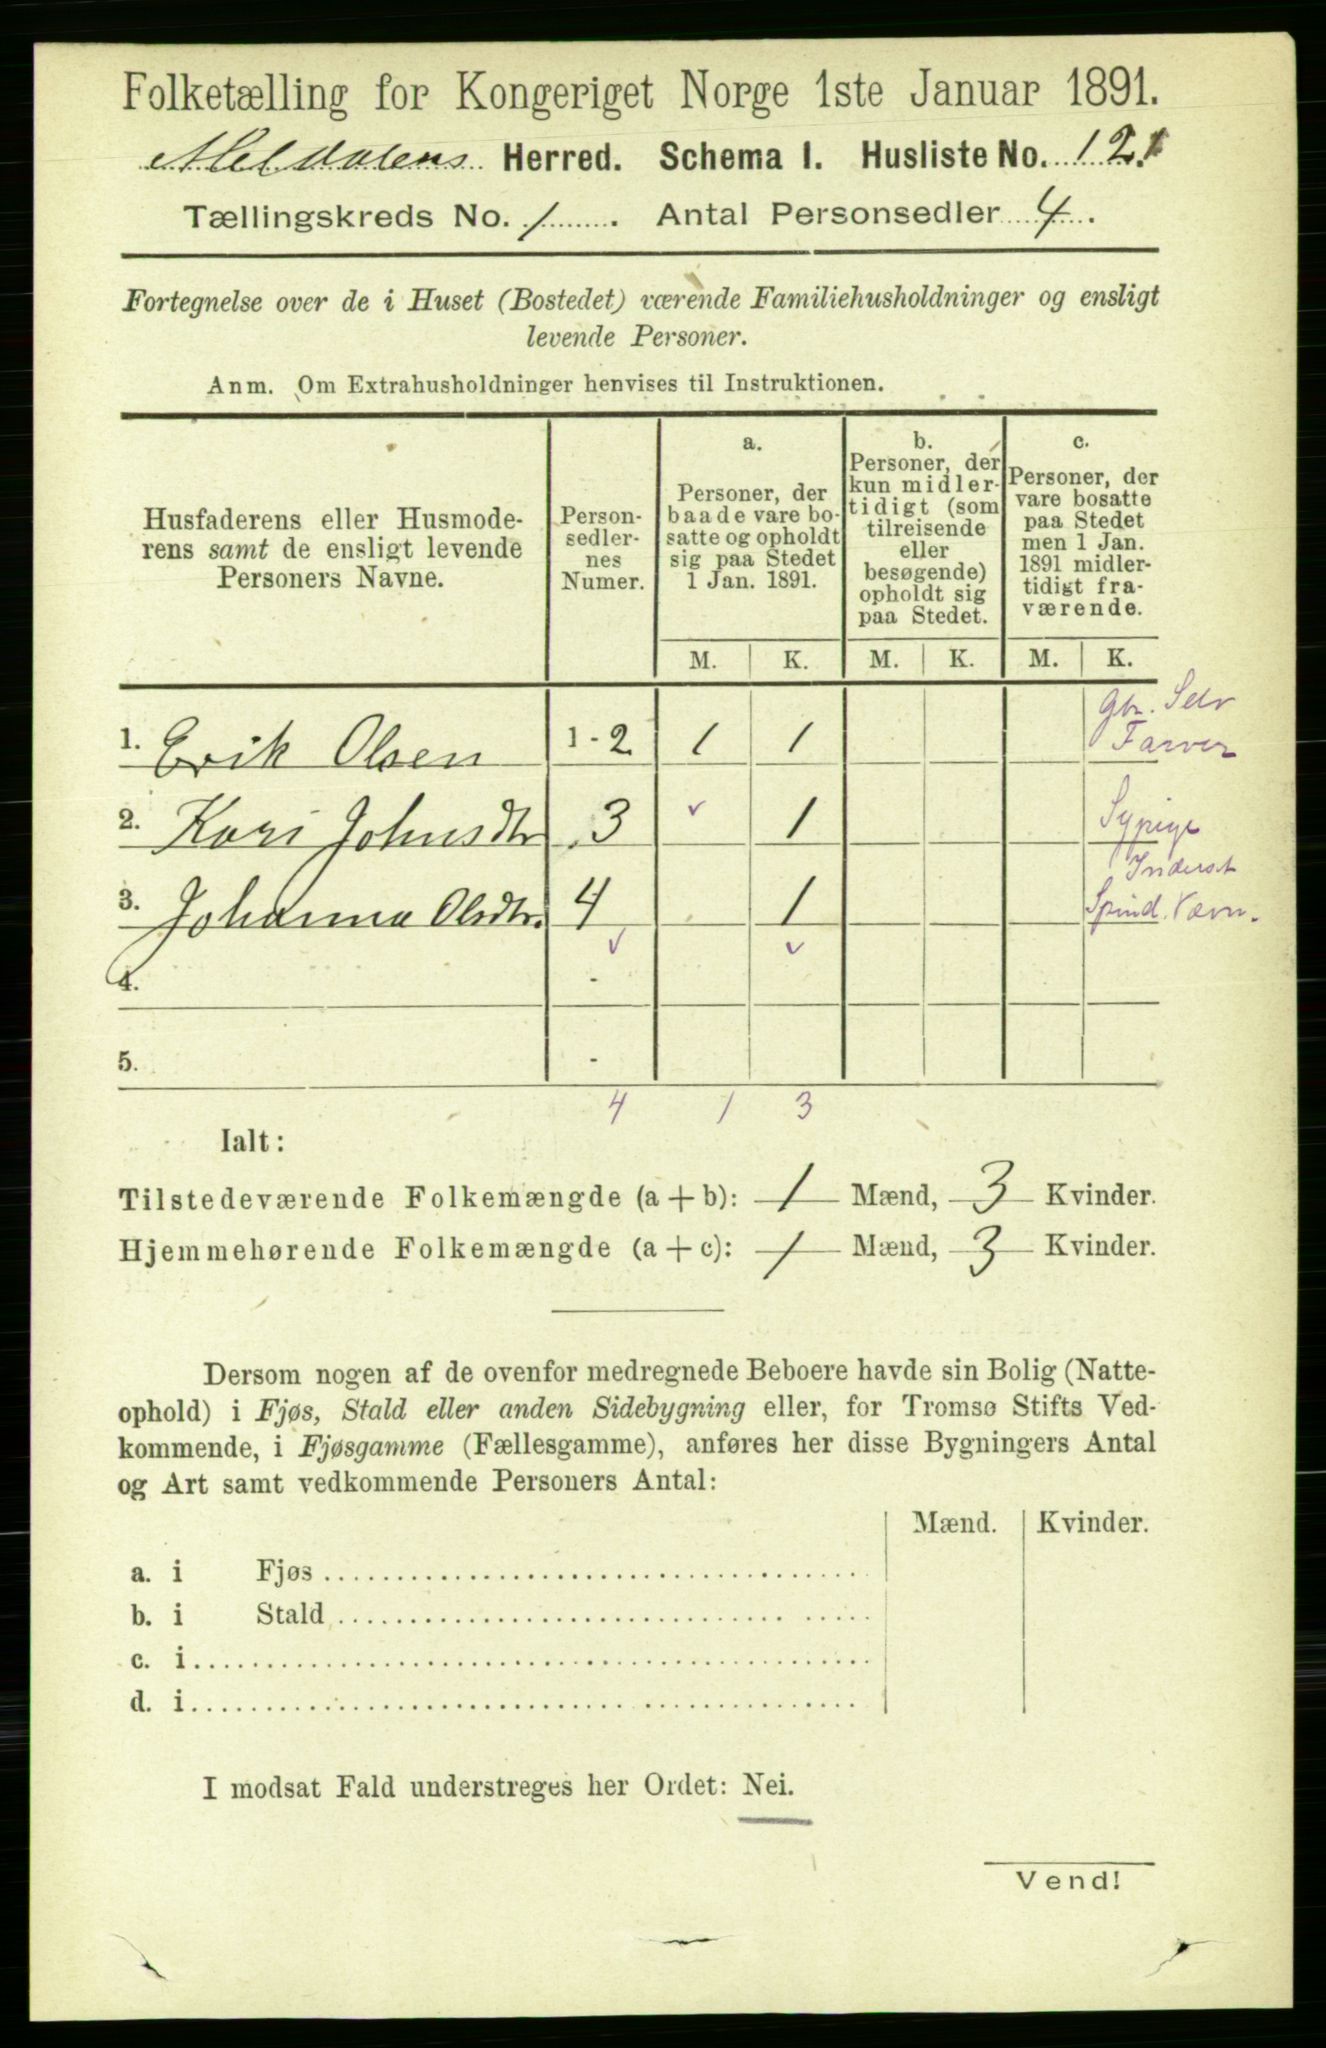 Folketælling for Kongeriget Norge 1ste Januar 1891.
Meldalens Herred. Schema I. Husliste No. 121
Tællingskreds No. 1. Antal Personsedler 4.
Fortegnelse over de i Huset (Bostedet) værende Familiehusholdninger og ensligt
levende Personer.
Anm. Om Extrahusholdninger henvises til Instruktionen.
Husfaderens eller Husmode-
rens samt de ensligt levende
Personers Navne.
Person-
sedler-
nes
Numer.
a.
Personer, der
baade vare bo-
satte og opholdt
sig paa Stedet
1 Jan. 1891.
b.
Personer, der
kun midler-
tidigt (som
tilreisende
eller
besøgende)
opholdt sig
paa Stedet.
c.
Personer, der
vare bosatte
paa Stedet
men 1 Jan.
1891 midler-
tidigt fra-
værende.
M. K. M. K. M. K.
Gbr. Selv
1. Erik Olsen 1-2 1 1 Farver
2. Kari Johnsdtr 3 v 1 Sypige
Inderst
3. Johanna Olsdtr. 4 1 Spind. Væv.
v v
4. -
5. -
4 1 3
Ialt:
Tilstedeværende Folkemængde (a + b): 1 Mænd, 3 Kvinder.
Hjemmehørende Folkemængde (a + c): 1 Mænd, 3 Kvinder.
Dersom nogen af de ovenfor medregnede Beboere havde sin Bolig (Natte-
ophold) i Fjøs, Stald eller anden Sidebygning eller, for Tromsø Stifts Ved-
kommende, i Fjøsgamme (Fællesgamme), anføres her disse Bygningers Antal
og Art samt vedkommende Personers Antal:
Mænd. Kvinder.
a. i Fjøs
b. i Stald
c. i
d. i
I modsat Fald understreges her Ordet: Nei.
Vend!